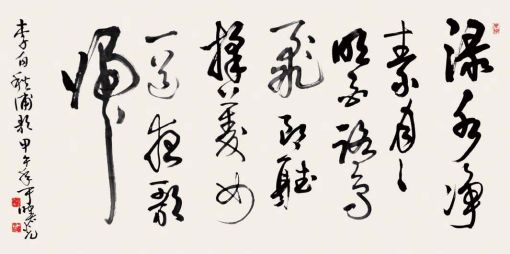 渌水净
素月々
明白鷺
飛郎聽
採菱女
一道夜歌
歸
李白秋浦歌甲午年